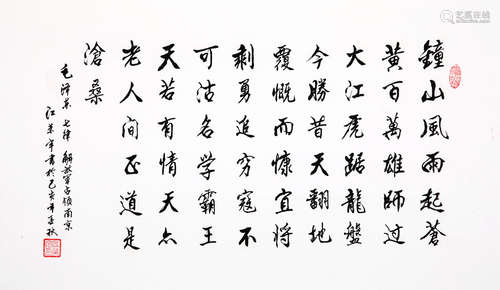 鐘山風雨起蒼
黄百萬雄師過
大江虎踞龍盤
今勝昔天翻地
覆慨而慷宜將
剩勇追穷寇不
可沽名学霸王
天若有情天亦
老人间正道是
滄桑
毛泽东 七律 解放军占领南京
書於己亥年孟秋
艺狐在线